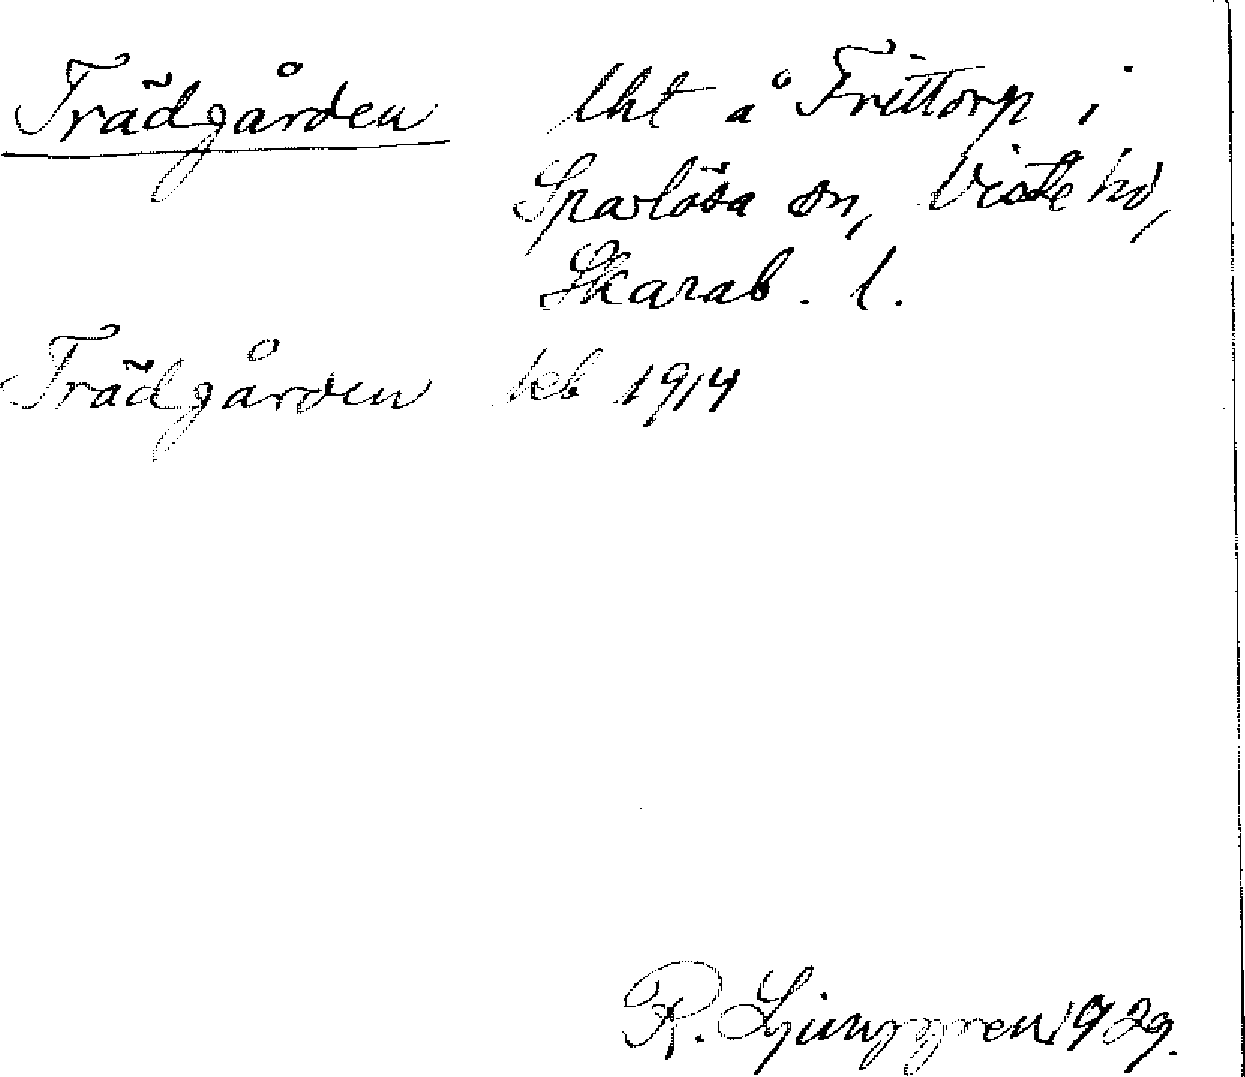 Trädgården lht å Frittorp i
Sparlösa sn, Viste hd,
Skarab. l.
Trädgården kb 1914
R. Ljunggren 1929.